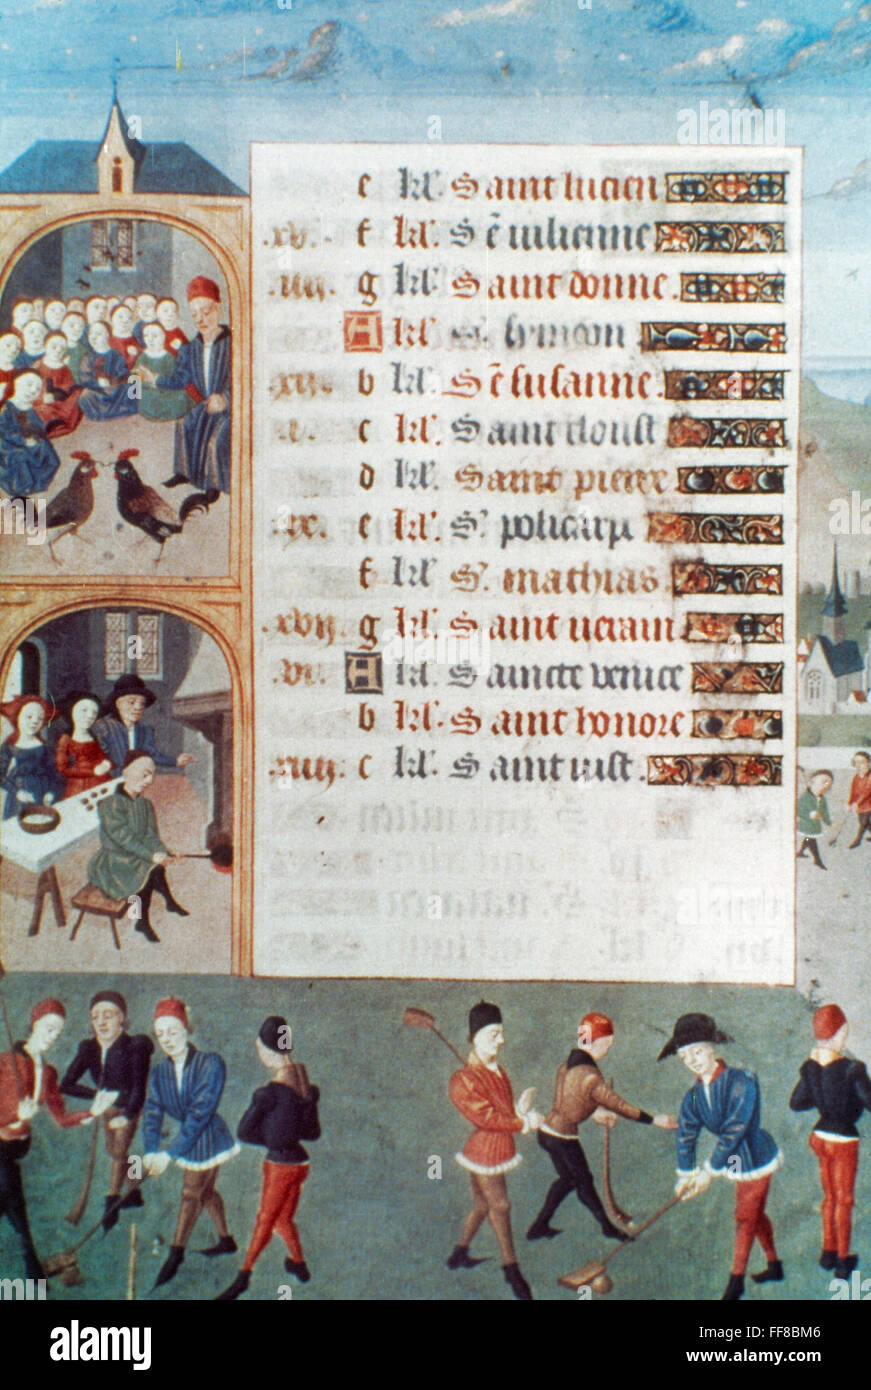 e kl' Saint lucien
.xv. f kl'. Se iulienne
.iiii. g kl'. Saint donne.
A kl'. S. symeon
.xii. b kl'. Se susanne.
.i. c kl'. Saint cloust
d kl'. Saint pierre
.ix. e kl'. S'. policarpe
f kl' S'. mathias.
.xvii. g kl'. Saint uerain
.vi. A kl'. Saincte venice
b kl'. Saint honore
.xiiii. c kl'. Saint uist.
alamy
Image ID: FF8BM6
www.alamy.com